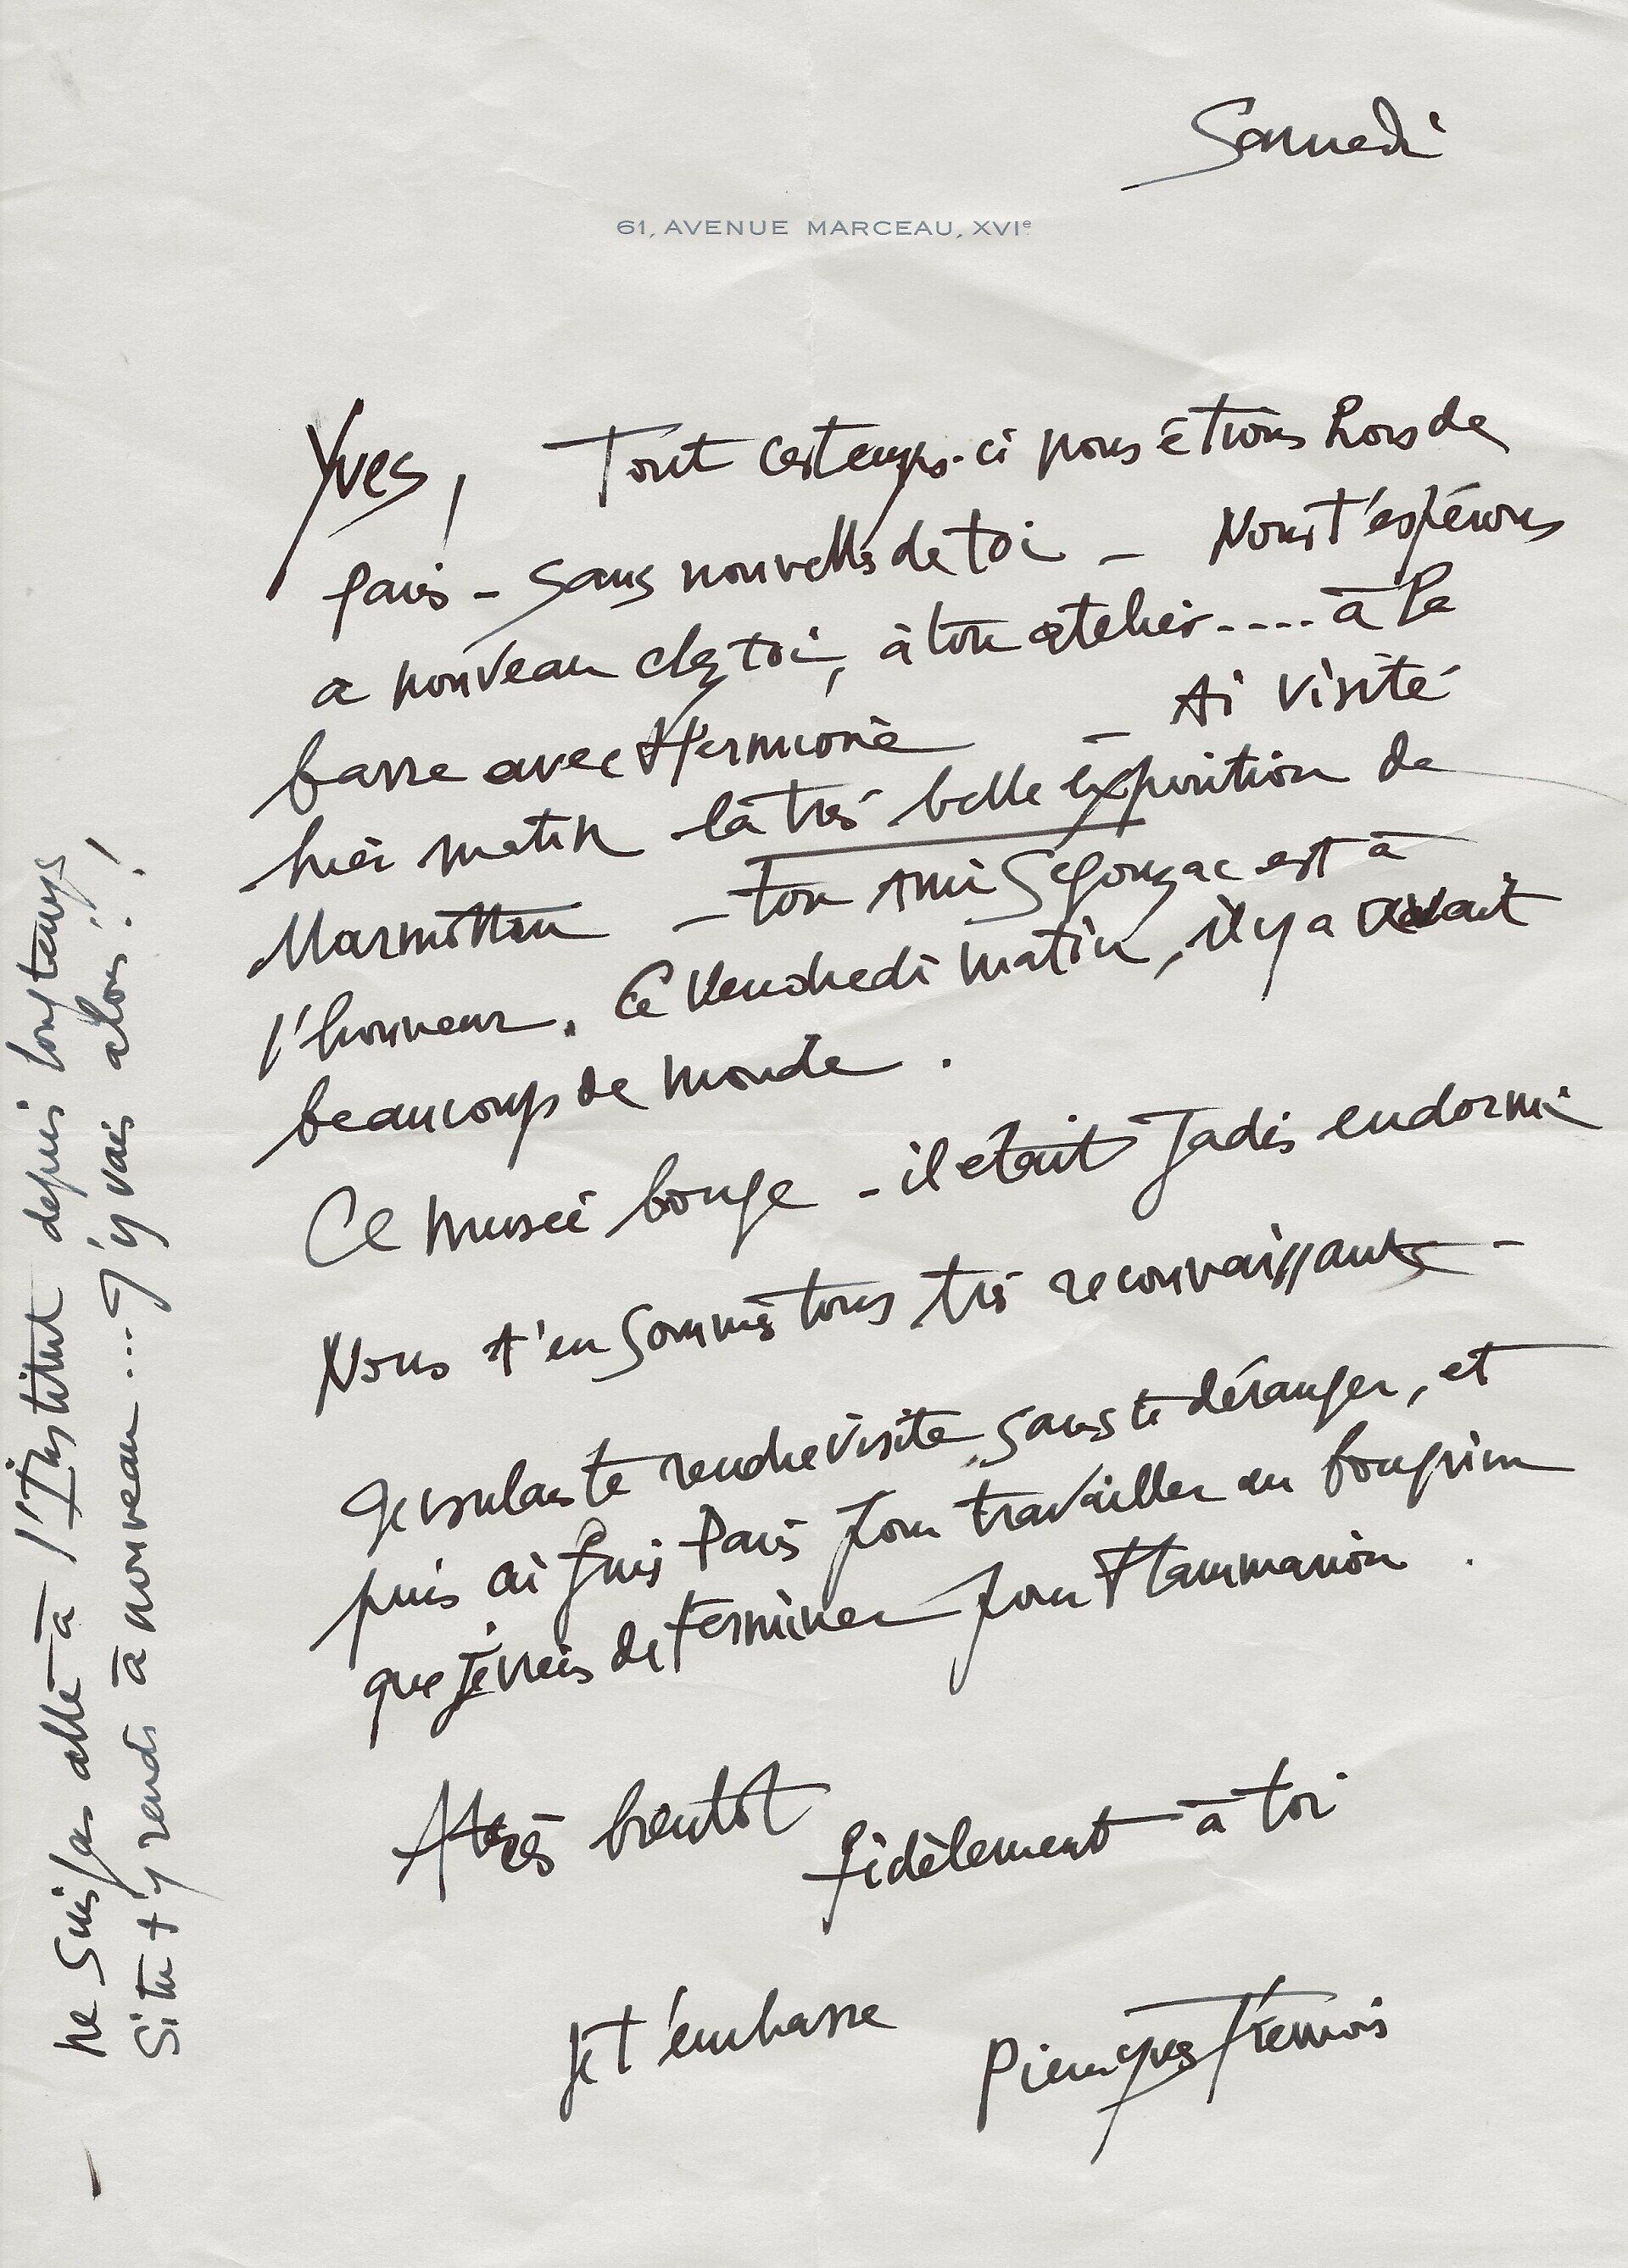 Samedi
61, AVENUE MARCEAU, XVIe
Yves, Tout ces temps-ci nous étions hors de
Paris - sans nouvelles de toi - Nous t'espérons
a nouveau chez toi, à ton atelier .... à la
barre avec Hermione - Ai visité
hier matin la très belle exposition de
Marmottan - ton ami Segonzac est à
l'honneur. Ce vendredi matin, il y avait
beaucoup de monde.
Ce musée bouge - il était jadis endormi
Nous t'en sommes tous très reconnaissants -
Je voulais te rendre visite, sans te déranger, et
puis ai fui Paris pour travailler au bouquin
que je viens de terminer pour Flammarion.
A très bientôt
fidèlement à toi
Je t'embrasse
Pierre Yves Trémois
- ne suis pas allé à l'Institut depuis longtemps
Si tu t'y rends à nouveau ... J'y vais alors!!